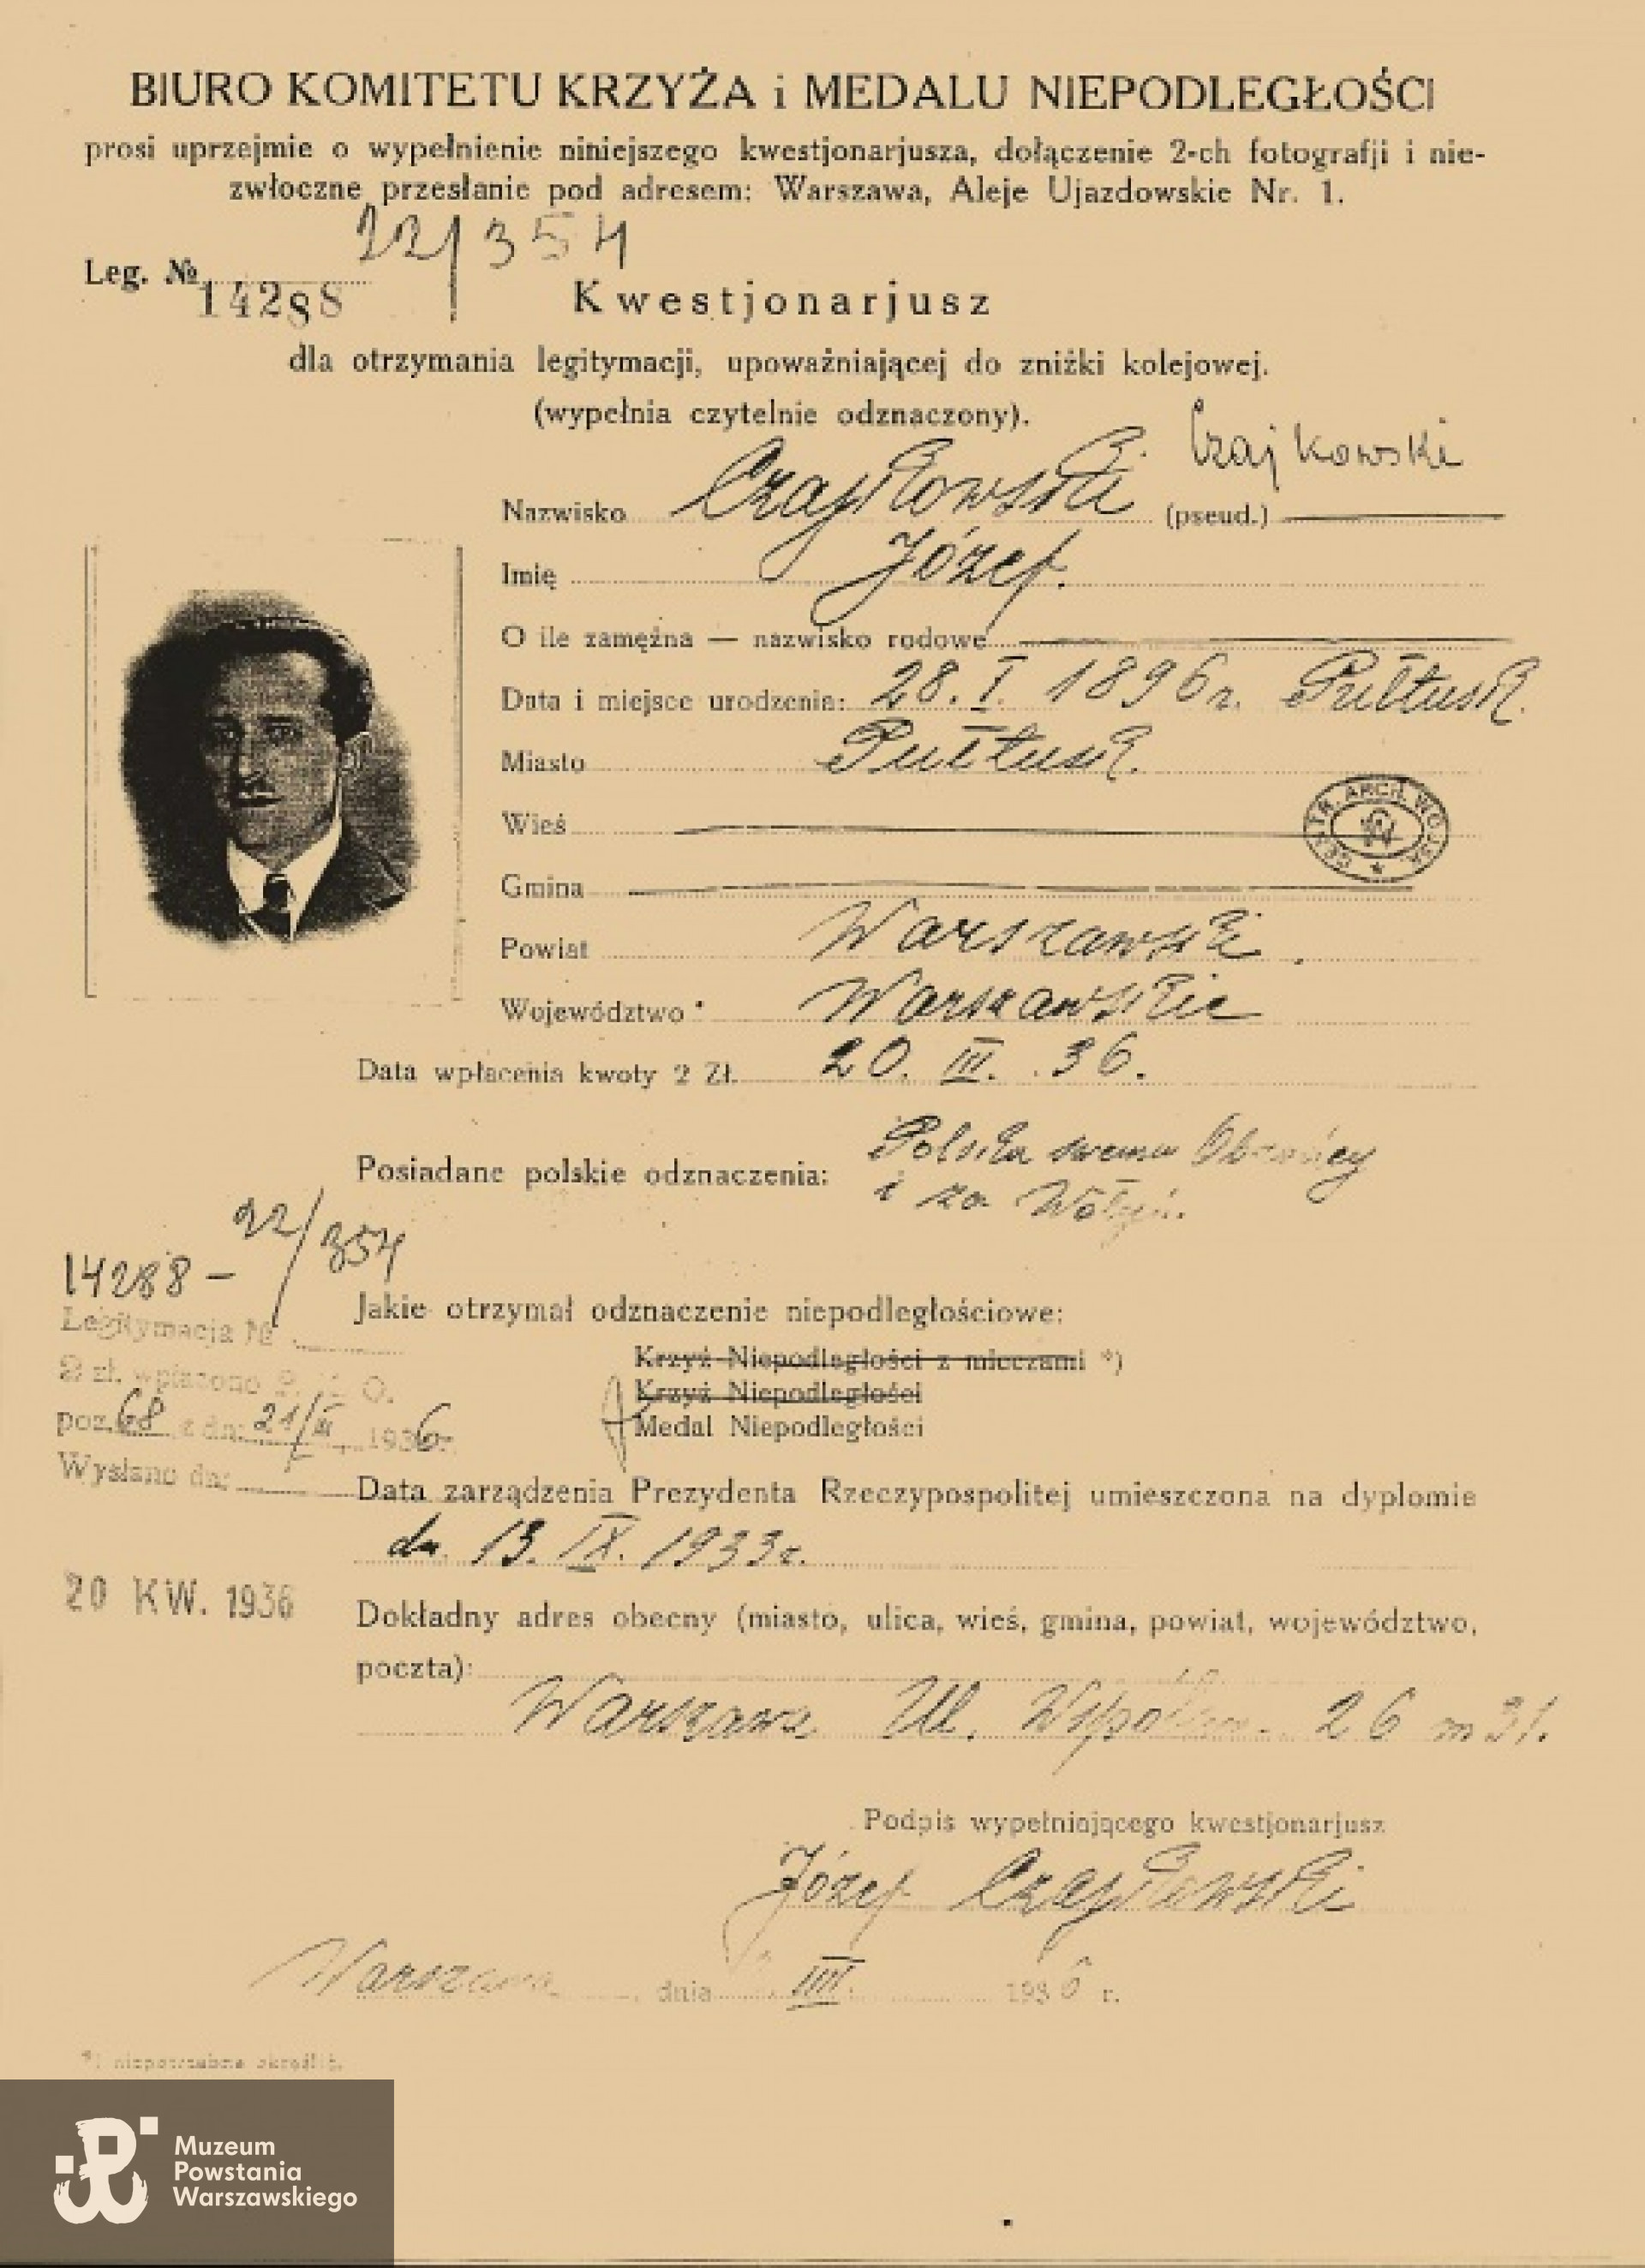 BIURO KOMITETU KRZYŻA i MEDALU NIEPODLEGŁOŚCI
prosi uprzejmie o wypełnienie niniejszego kwestjonarjusza, dołączenie 2-ch fotografji i nie-
zwłoczne przesłanie pod adresem: Warszawa, Aleje Ujazdowskie Nr. 1.
22/354
Leg. № 14288
Kwestjonarjusz
dla otrzymania legitymacji, upoważniającej do zniżki kolejowej.
(wypełnia czytelnie odznaczony).
Czajkowski
Nazwisko Czajkowski (pseud.)
Imię Józef.
O ile zamężna — nazwisko rodowe
Data i miejsce urodzenia: 28. I. 1896 r. Pułtusk.
Miasto Pułtusk.
Wieś
CENTR. ARCH. WOJSK.
Gmina
Powiat Warszawski.
Województwo Warszawskie
Data wpłacenia kwoty 2 Zł. 20. III. 36.
Posiadane polskie odznaczenia: Polska swemu Obrońcy
i za Wołyń.
22/354
14288 –
Jakie otrzymał odznaczenie niepodległościowe:
Legitymacja №
Krzyż Niepodległości z mieczami *)
2 zł. wpłacono P. K. O.
Krzyż Niepodległości
poz. 68 z dn. 21/III 1936
Medal Niepodległości
Wysłano dn.
Data zarządzenia Prezydenta Rzeczypospolitej umieszczona na dyplomie
dn. 13. IX. 1933 r.
20 KW. 1936
Dokładny adres obecny (miasto, ulica, wieś, gmina, powiat, województwo,
poczta):
Warszawa Ul. Wspólna 26 m 31.
Podpis wypełniającego kwestjonarjusz
Józef Czajkowski
Warszawa, dnia III 1936 r.
*) niepotrzebne skreślić.
Muzeum
Powstania
Warszawskiego